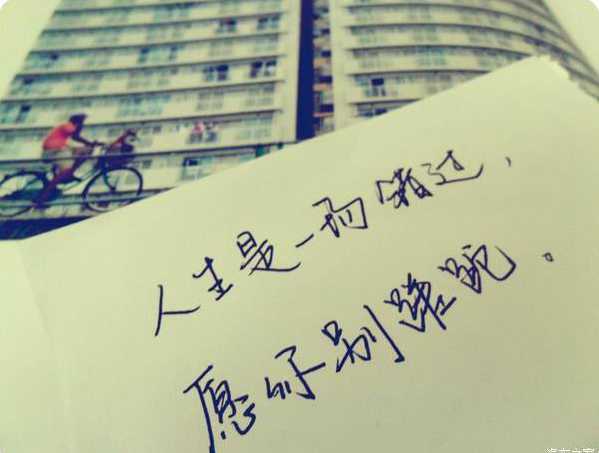 人生是一场错过，
愿你别蹉跎。